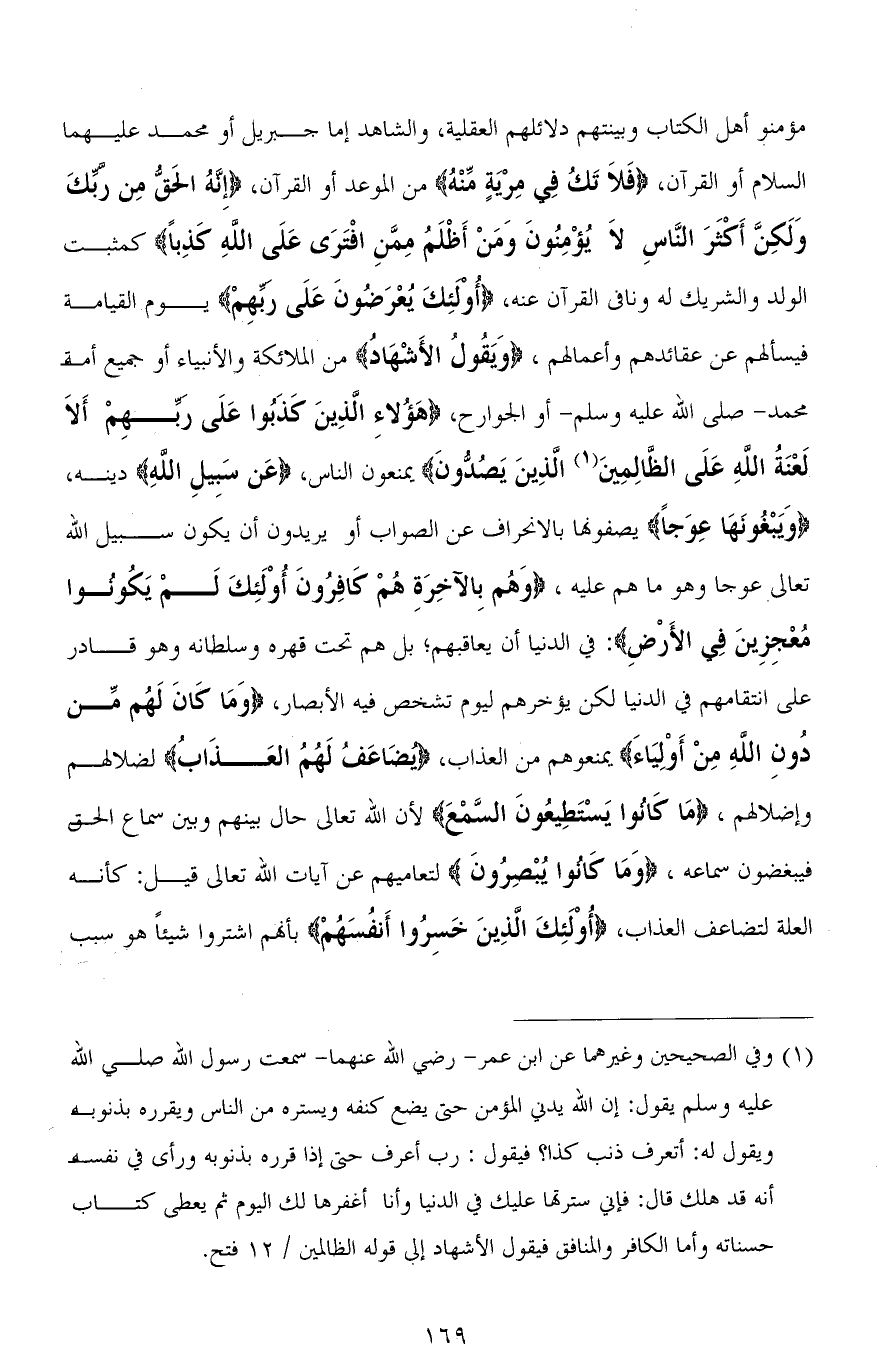 مؤمنو أهل الكتاب وبينتهم دلائلهم العقلية، والشاهد إما جبريل أو محمد عليهما
السلام أو القرآن، ﴿فَلاَ تَكُ فِي مِرْيَةٍ مِّنْهُ﴾ من الموعد أو القرآن، ﴿إِنَّهُ الحَقُّ مِن رَّبِّكَ
وَلَكِنَّ أَكْثَرَ النَّاسِ لاَ يُؤْمِنُونَ وَمَنْ أَظْلَمُ مِمَّنِ افْتَرَى عَلَى اللَّهِ كَذِباً﴾ كمثبت
الولد والشريك له ونافى القرآن عنه، ﴿أُوْلَئِكَ يُعْرَضُونَ عَلَى رَبِّهِمْ﴾ يوم القيامة
فيسألهم عن عقائدهم وأعمالهم ، ﴿وَيَقُولُ الأَشْهَادُ﴾ من الملائكة والأنبياء أو جميع أمة
محمد- صلى الله عليه وسلم- أو الجوارح، ﴿هَؤُلاءِ الَّذِينَ كَذَبُوا عَلَى رَبِّهِمْ أَلاَ
لَعْنَةُ اللَّهِ عَلَى الظَّالِمِينَ(١) الَّذِينَ يَصُدُّونَ﴾ يمنعون الناس، ﴿عَن سَبِيلِ اللَّهِ﴾ دينه،
﴿وَيَبْغُونَهَا عِوَجاً﴾ يصفونها بالانحراف عن الصواب أو يريدون أن يكون سبيل الله
تعالى عوجا وهو ما هم عليه ، ﴿وَهُم بِالآخِرَةِ هُمْ كَافِرُونَ أُوْلَئِكَ لَمْ يَكُونُوا
مُعْجِزِينَ فِي الأَرْضِ﴾: في الدنيا أن يعاقبهم؛ بل هم تحت قهره وسلطانه وهو قادر
على انتقامهم في الدنيا لكن يؤخرهم ليوم تشخص فيه الأبصار، ﴿وَمَا كَانَ لَهُم مِّن
دُونِ اللَّهِ مِنْ أَوْلِيَاءَ﴾ يمنعوهم من العذاب، ﴿يُضَاعَفُ لَهُمُ العَذَابُ﴾ لضلالهم
وإضلالهم ، ﴿مَا كَانُوا يَسْتَطِيعُونَ السَّمْعَ﴾ لأن الله تعالى حال بينهم وبين سماع الحق
فيبغضون سماعه ، ﴿وَمَا كَانُوا يُبْصِرُونَ ﴾ لتعاميهم عن آيات الله تعالى قيل: كأنه
العلة لتضاعف العذاب، ﴿أُوْلَئِكَ الَّذِينَ خَسِرُوا أَنفُسَهُمْ﴾ بأنهم اشتروا شيئاً هو سبب
(١) وفي الصحيحين وغيرهما عن ابن عمر- رضي الله عنهما- سمعت رسول الله صلي الله
عليه وسلم يقول: إن الله يدني المؤمن حتى يضع كنفه ويستره من الناس ويقرره بذنوبه
ويقول له: أتعرف ذنب كذا؟ فيقول : رب أعرف حتى إذا قرره بذنوبه ورأى في نفسه
أنه قد هلك قال: فإني سترتها عليك في الدنيا وأنا أغفرها لك اليوم ثم يعطى كتاب
حسناته وأما الكافر والمنافق فيقول الأشهاد إلى قوله الظالمين / ١٢ فتح.
١٦٩